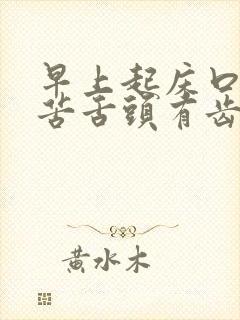 早上起床口
苦舌頭有齿
黄水木